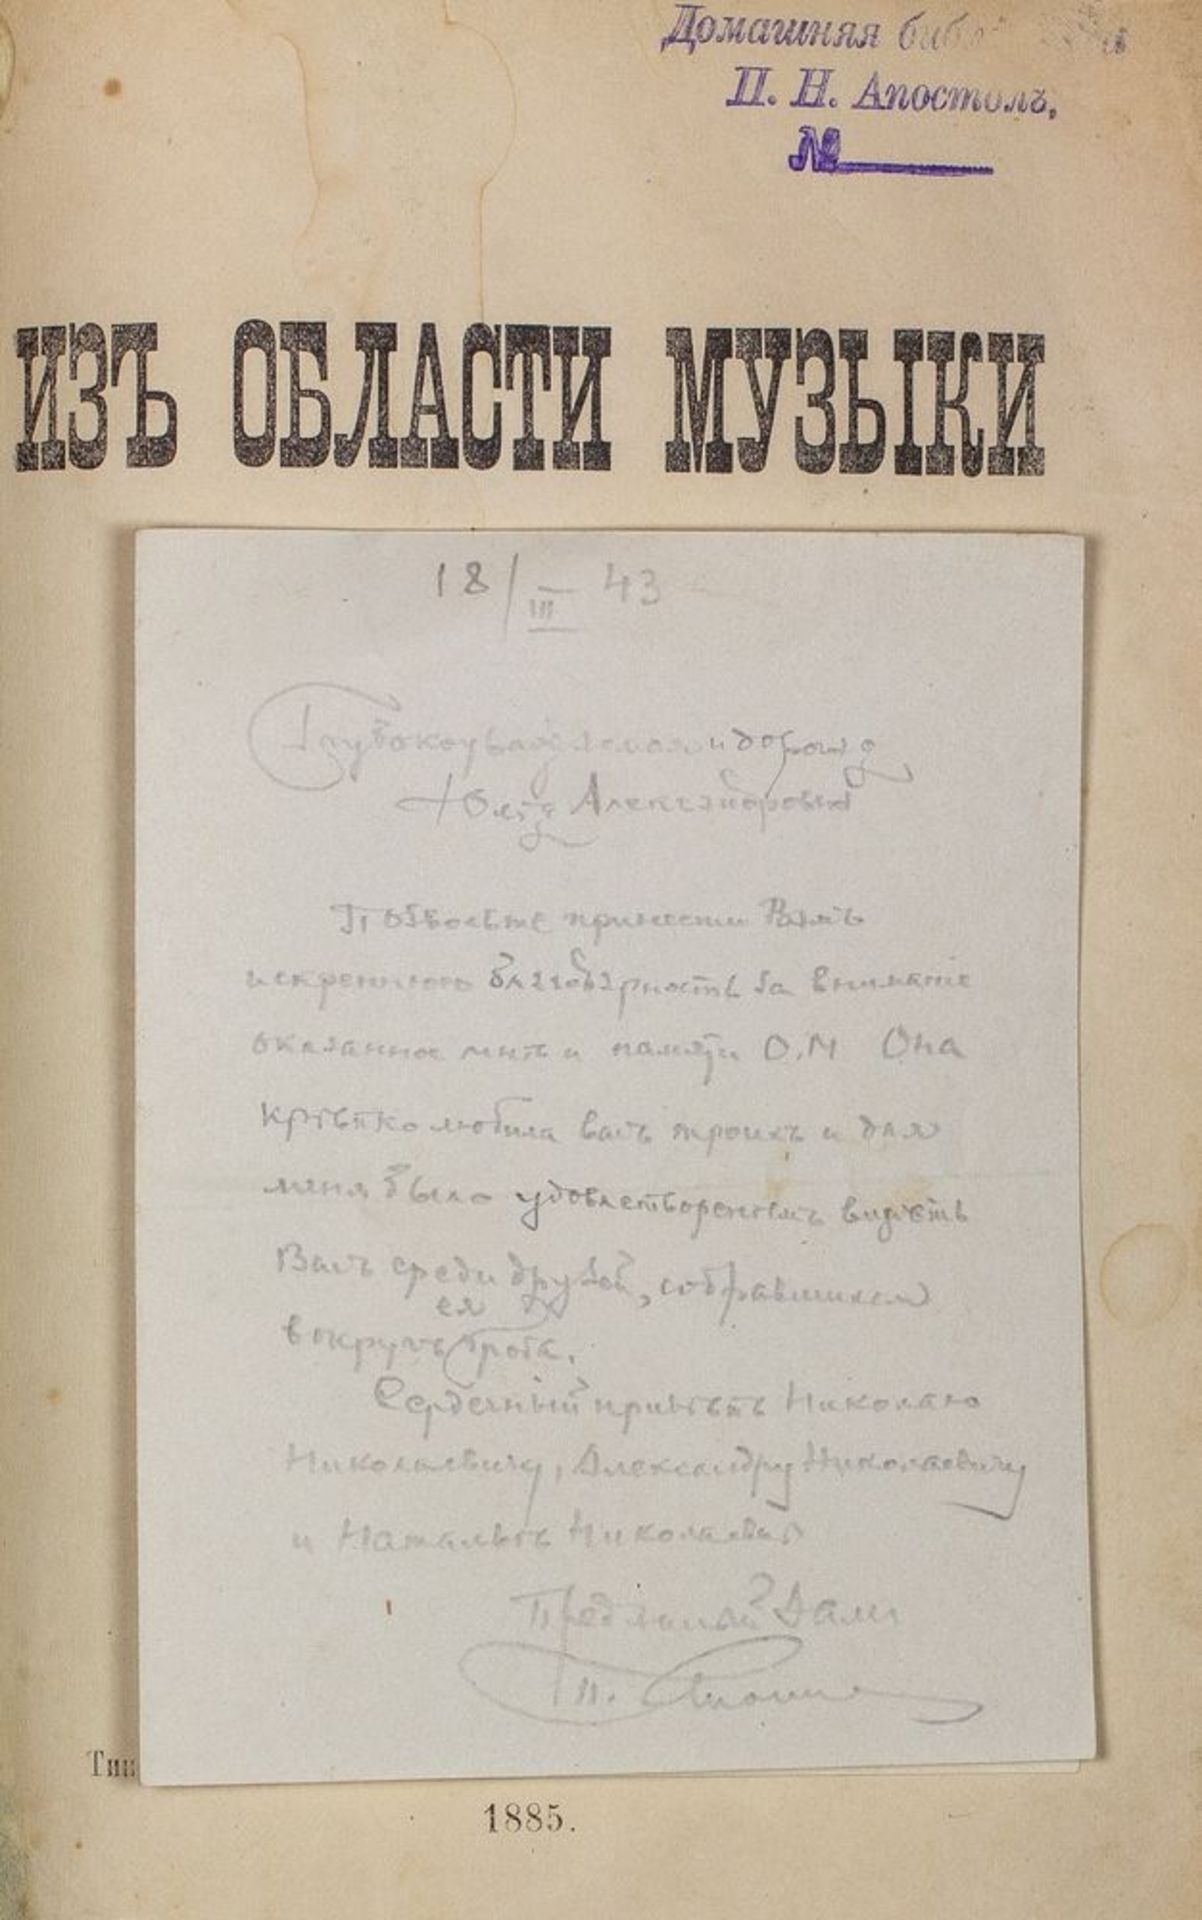 Домашняя
П. Н. Апостолъ,
№
ИЗЪ ОБЛАСТИ МУЗЫКИ
18/III – 43
Глубокоуважаемая и дорогая
Ольга Александровна
Позвольте принести Вамъ
искреннюю благодарность за вниманіе
оказанное мнѣ и памяти О.М Она
крѣпко любила васъ троихъ и для
меня было удовлетвореніемъ видѣть
Васъ среди друзей, собравшихся
вокругъ ея гроба.
Сердечный привѣтъ Николаю
Николаевичу, Александру Николаевичу
и Натальѣ Николаевнѣ
Преданный Вамъ
П. Апостолъ
Тип
1885.